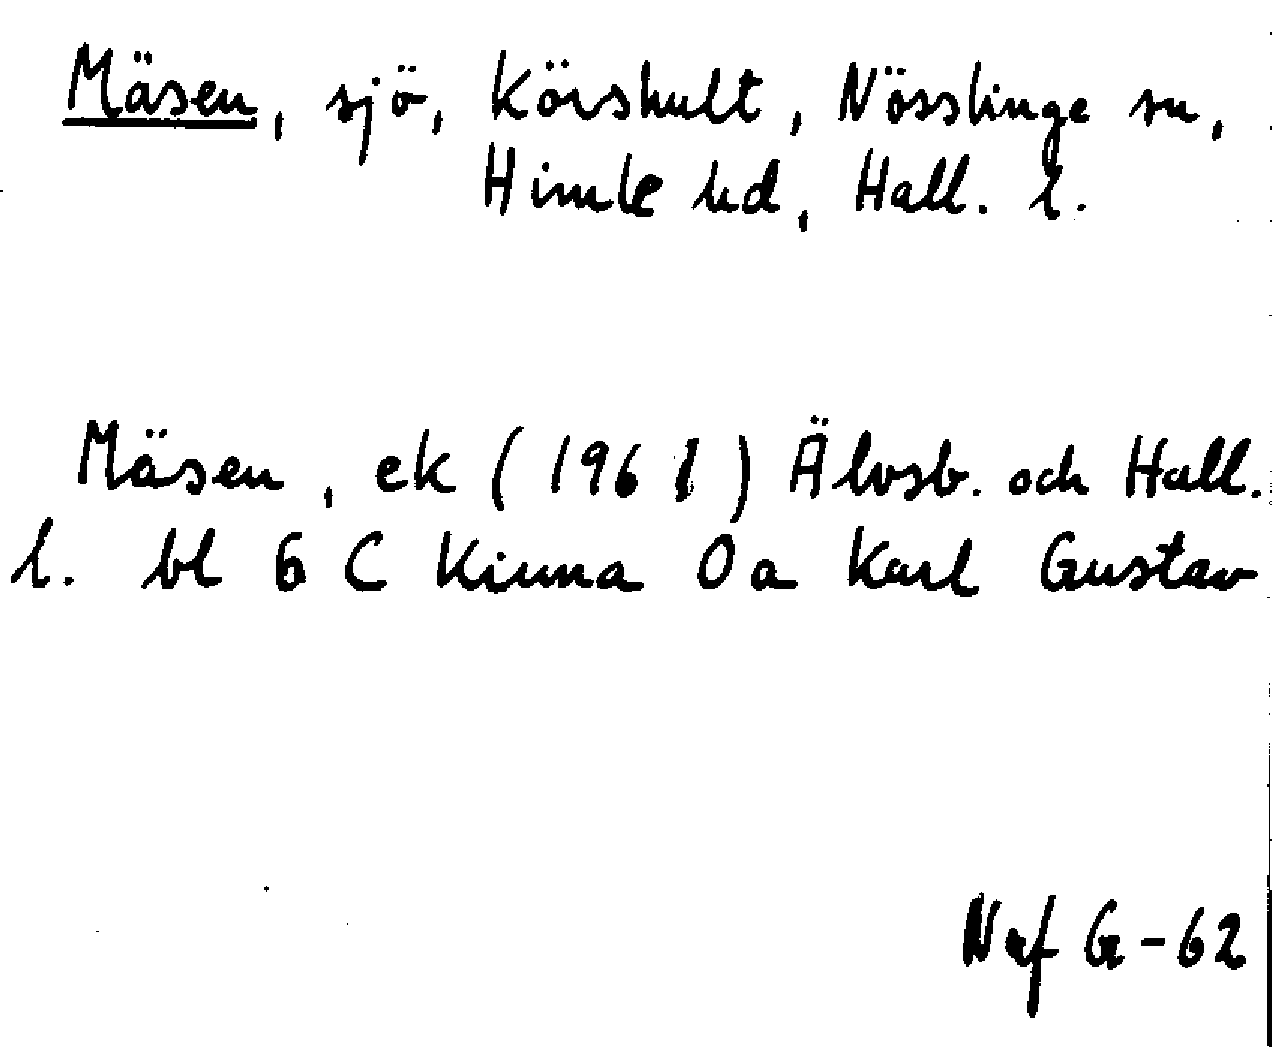 Mäsen, sjö, Körshult, Nösslinge sn,
Himle hd, Hall. l.
Mäsen, ek (1961) Älvsb. och Hall.
l. bl 6 C Kinna 0a Karl Gustav
Naf G-62